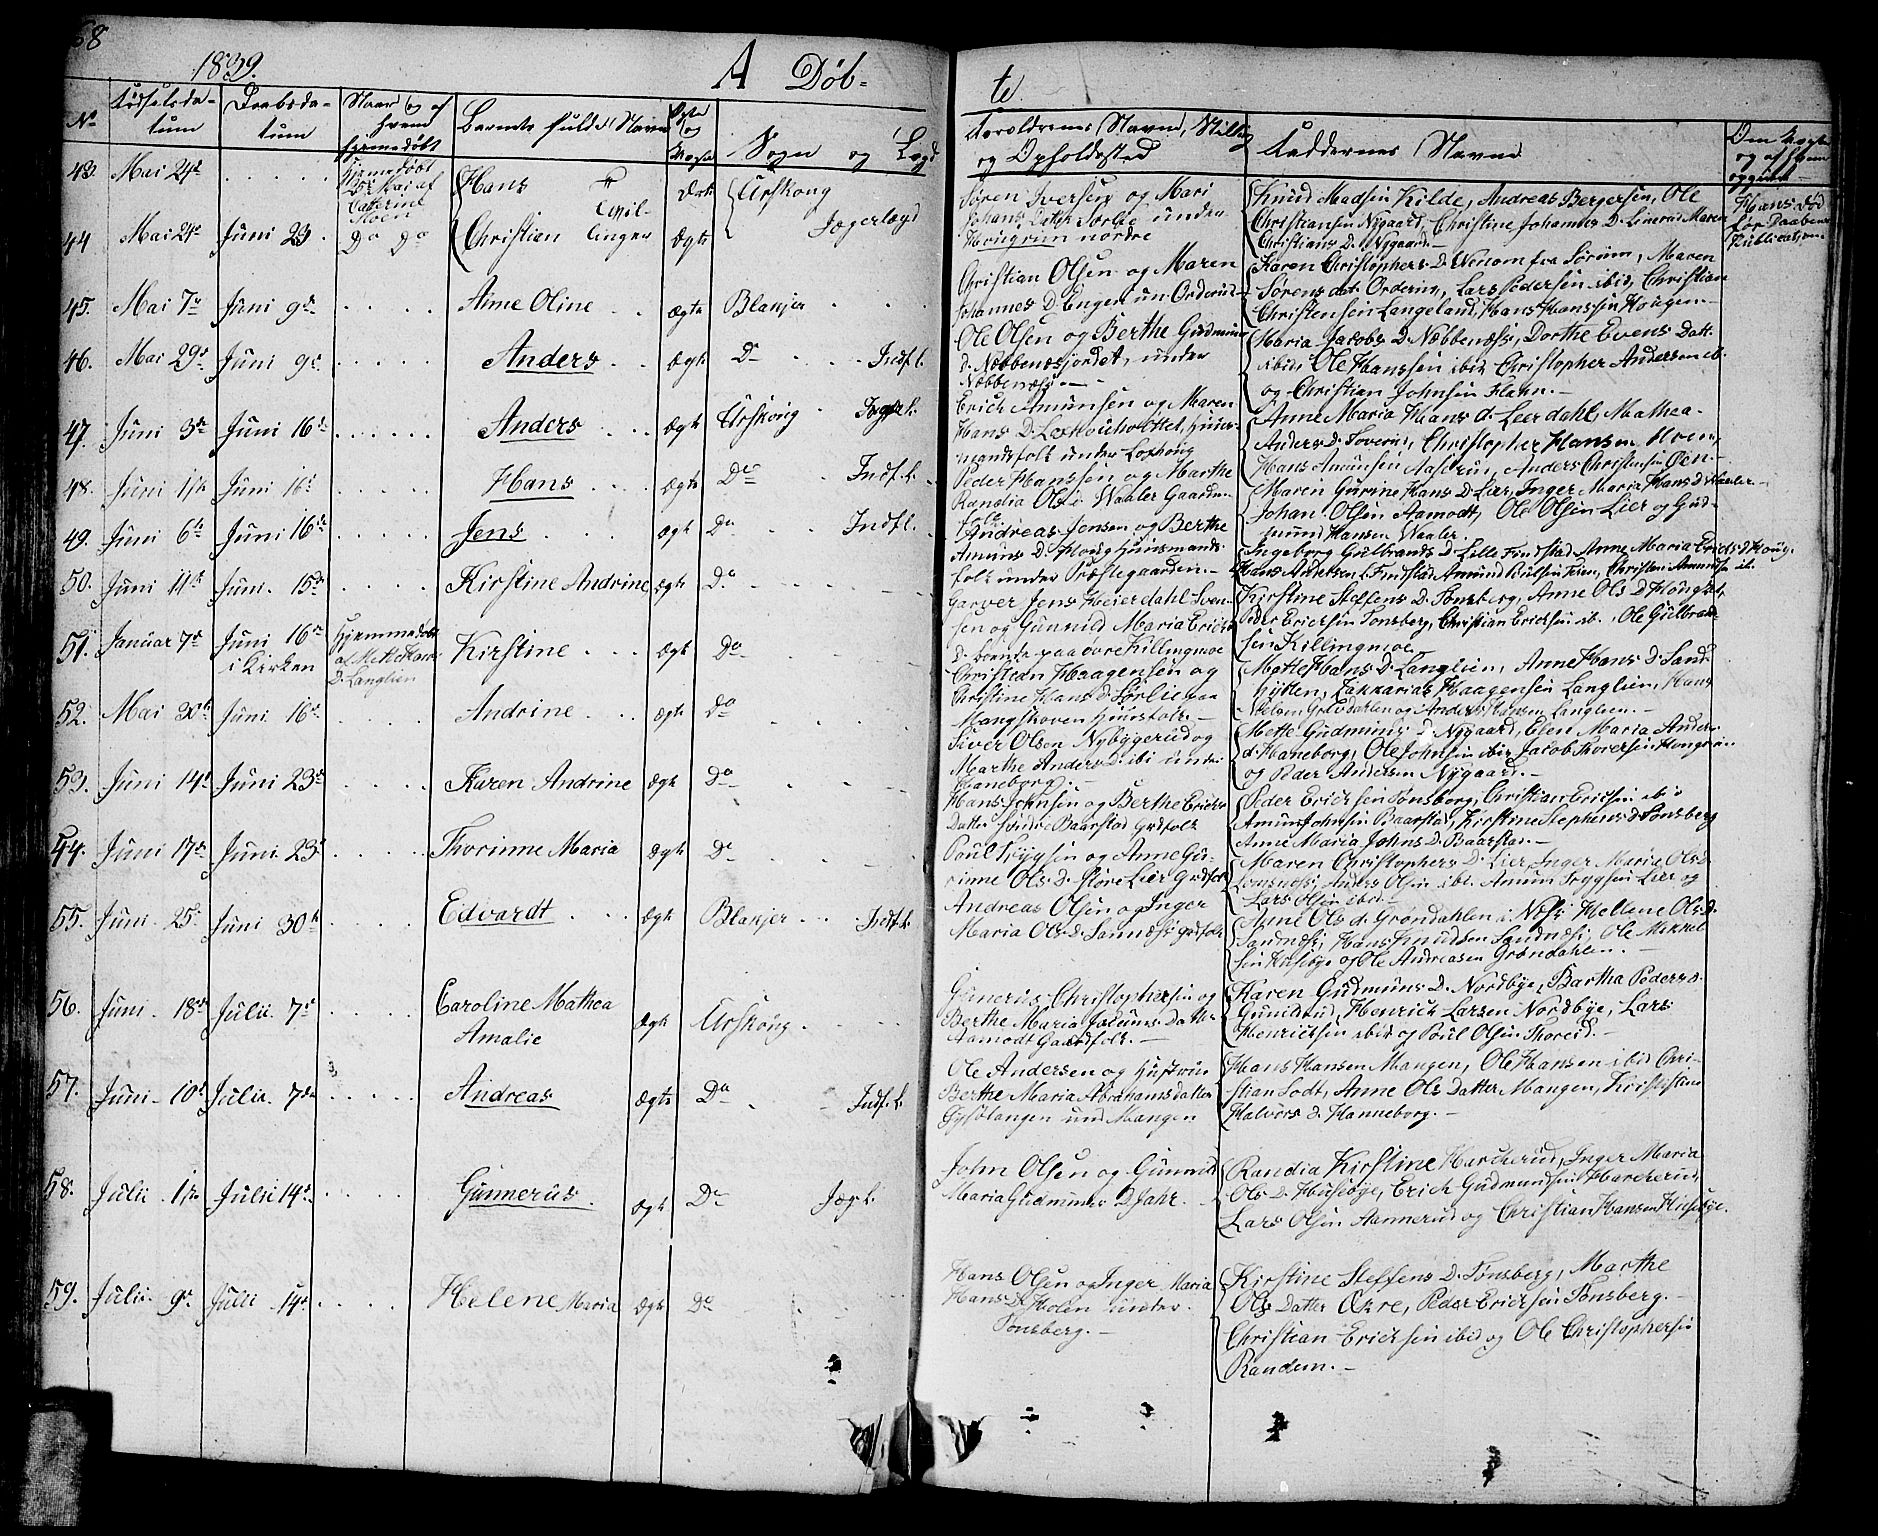 68
1839.
A Døb-
te
No
Fødselsda-
tum
Daabsda-
tum
Naar og af
hvem
hjemmedøbt
Barnets fulde Navn
Sogn og Lægd
Forældrenes Navne, Stilling
og Opholdssted
Faddernes Navne
43. Mai 24de . . . . . Hjemmedøbt
Mai af
Hans
Urskoug
Jægerlægd
Søren Iversen og Mari
under
Hougrim nordre
Knud Madsen Kilde, Andreas Bergersen, Ole
Christiansen Nygaard, Christine Johannes D. Maren
Christians D. Nygaard
Hans død
før Daabens
Publication
44 Mai 24de Juni 23 Do Do Christian Ægte
45. Mai 7de Juni 9de . . . . Anne Oline . . ægte Blakjer . .
Christian Olsen og Maren
Johannes D. Engen un Orderud
Karen Christophers D. fra Sørum, Maren
Sørens dat. Orderud, Lars Pedersen ibid, Christian
Christensen Langeland, Hans Hanssen Hougen.
46. Mai 29de Juni 9de . . . . Anders . . ægte Do . . . Indf.l.
Ole Olsen og Berthe Gudmuns
D. Næbbenæsjordet, under
Næbbenæss.
Maria Jacobs D. Næbbenæss, Dorthe Evens Datt.
ibid, Ole Hanssen ibid Christopher Andersen ib.
og Christian Johnsen Flahn.
47. Juni 3de Juni 16de . . . . . . Anders . . . . ægte Urskoug . Jæger l.
Erich Amunsen og Maren
Hans D. Huus-
mandsfolk under
Anne Maria Hans d. Lierdahl, Mathea
Anders D. Toverud, Christopher Hansen Moen,
Hans Amunsen Aaserud, Anders Christensen Øen.
48. Juni Juni 16de . . . . . Hans . . . . ægte Do . . Indf.l.
Peder Hanssen og Marthe
Randia Ols d. Waaler Gaardm.
folk
Maren Gurine Hans D. Lier, Inger Maria Hans d. Waaler
Johan Olsen Aamodt, Ole Olsen Lier og Gud-
mund Hansen Waaler.
49. Juni 6te Juni 16de . . . . . Jens . . . . ægte Do . . Indf.l.
Andreas Jensen og Berthe
Amuns D. Houg Huusmands
folk under Præstegaarden
Ingeborg Gulbrands D. Lille Finstad Anne Maria Erichs D. Houg.
Hans Andersen L. Finstad Amund Christen Amundsen ib.
50. Juni 11te Juni 15de . . . . Kirstine Andrine ægte Do . . . .
Garver Jens Heierdahl Sven-
sen og Gunnild Maria Erichs
D. paa øvre Killingmoe
Kirstine Steffens D. Tønsberg, Anne Ols D.
Peder Ericksen Tonsberg, Christian Ericksen ib., Ole Gulbrand-
sen Killingmoe
51. Januar 7de Juni 16de
i Kirken
Hjemmedøbt
af Mette Hans
D. Langlien
Kirstine . . . ægte Do . . .
Christen Haagensen og
Christine Hans D. Sørlie paa
Mangskoven Huusfolk.
Mette Hans D. Langlien, Anne Hans D. Sand-
hytten, Zakkarias Haagensen Langlien, Hans
Nielsen Grevdahlen og Anders Hansen Langlien.
52. Mai 30te Juni 16de . . . . Andrine . . . ægte Do . . .
Siver Olsen Nybyggerud og
Marthe Anders D. ibi under
Haneborg.
Mette Gudmunds D. Nygaard, Elen Maria Anders
d. Haneborg, Ole Johnsen ibid, Jacob
og Peder Andersen Nygaard.
53. Juni 14de Juni 23de . . . . Karen Andrine ægte Do . . .
Hans Johnsen og Berthe Erichs
Datter søndre Baarstad Grdfolk
Peder Ericksen Tønsborg, Christian Ericksen ibd
Amun Johnsen Baarstad, Kirstine Stephens D. Tønsberg
Anne Maria Johns D. Baarstad.
54. Juni 17de Juni 23de . . . . Thorinne Maria ægte Do . . .
Poul Trygsen og Anne Gu-
rinne Ols D. store Lier Grdfolk
Maren Christophers D. Lier, Inger Marie Ols D.
Lomsness, Anders Olsen ibi. Amun Trygsen Lier og
Lars Olsen ibid.
55. Juni 25de Juni 30te . . . . Edvardt . . . ægte Blakjer . . . Indf.l.
Andreas Olsen og Inger
Maria Ols D. Sannæss Grdfolk
Anne Ols d. Grøndahlen i Næss, Hellene Ols D.
Sandnæss, Hans Knudsen Sandnæss, Ole Mikkel-
sen Huseby og Ole Andreasen Grøndahlen.
56. Juni 18de Julii 7de . . . . Caroline Mathea
Amalie
ægte Urskoug . . .
Gunerius Christophersen og
Berthe Maria Datter
Aamodt Gaardfolk.
Karen Gudmuns D. Nordbye, Bertha Peders
Gundrud, Henrich Larsen Nordbye, Lars
Henricksen ibid og Poul Olsen Thoreid.
57. Juni 10de Julii 7de . . . . Andreas ægte Do . . Indf.l.
Ole Andersen og Hustrue
Berthe Maria Abrahams datter
und Mangen
Hans Hansen Mangen, Ole Hansen ibid Chri-
stian Sodt, Anne Ols Datter Mangen, Kirstine
Halvors D. Hanneborg.
58. Julii 1ste Julii 14de . . . . Gunnerus . ægte Do Jægl.
John Olsen og Gunnild
Maria Gudmunds D. Jahr.
Randia Kirstine Harckerud, Inger Maria
Ols D. Husebye, Erich Gudmundsen Harckerud,
Lars Olsen Aannerud og Christian Hansen Husebye.
59. Julii 9de Julii 14de . . . . Helene Maria ægte Do
Hans Olsen og Inger Maria
Hans D. Holen under
Tønsberg.
Kirstine Steffens D. Tønsberg, Marthe
Ols Datter Økre, Peder Ericksen Tonsberg.
Christian Ericksen ibid og Ole Christophersen
Randem.